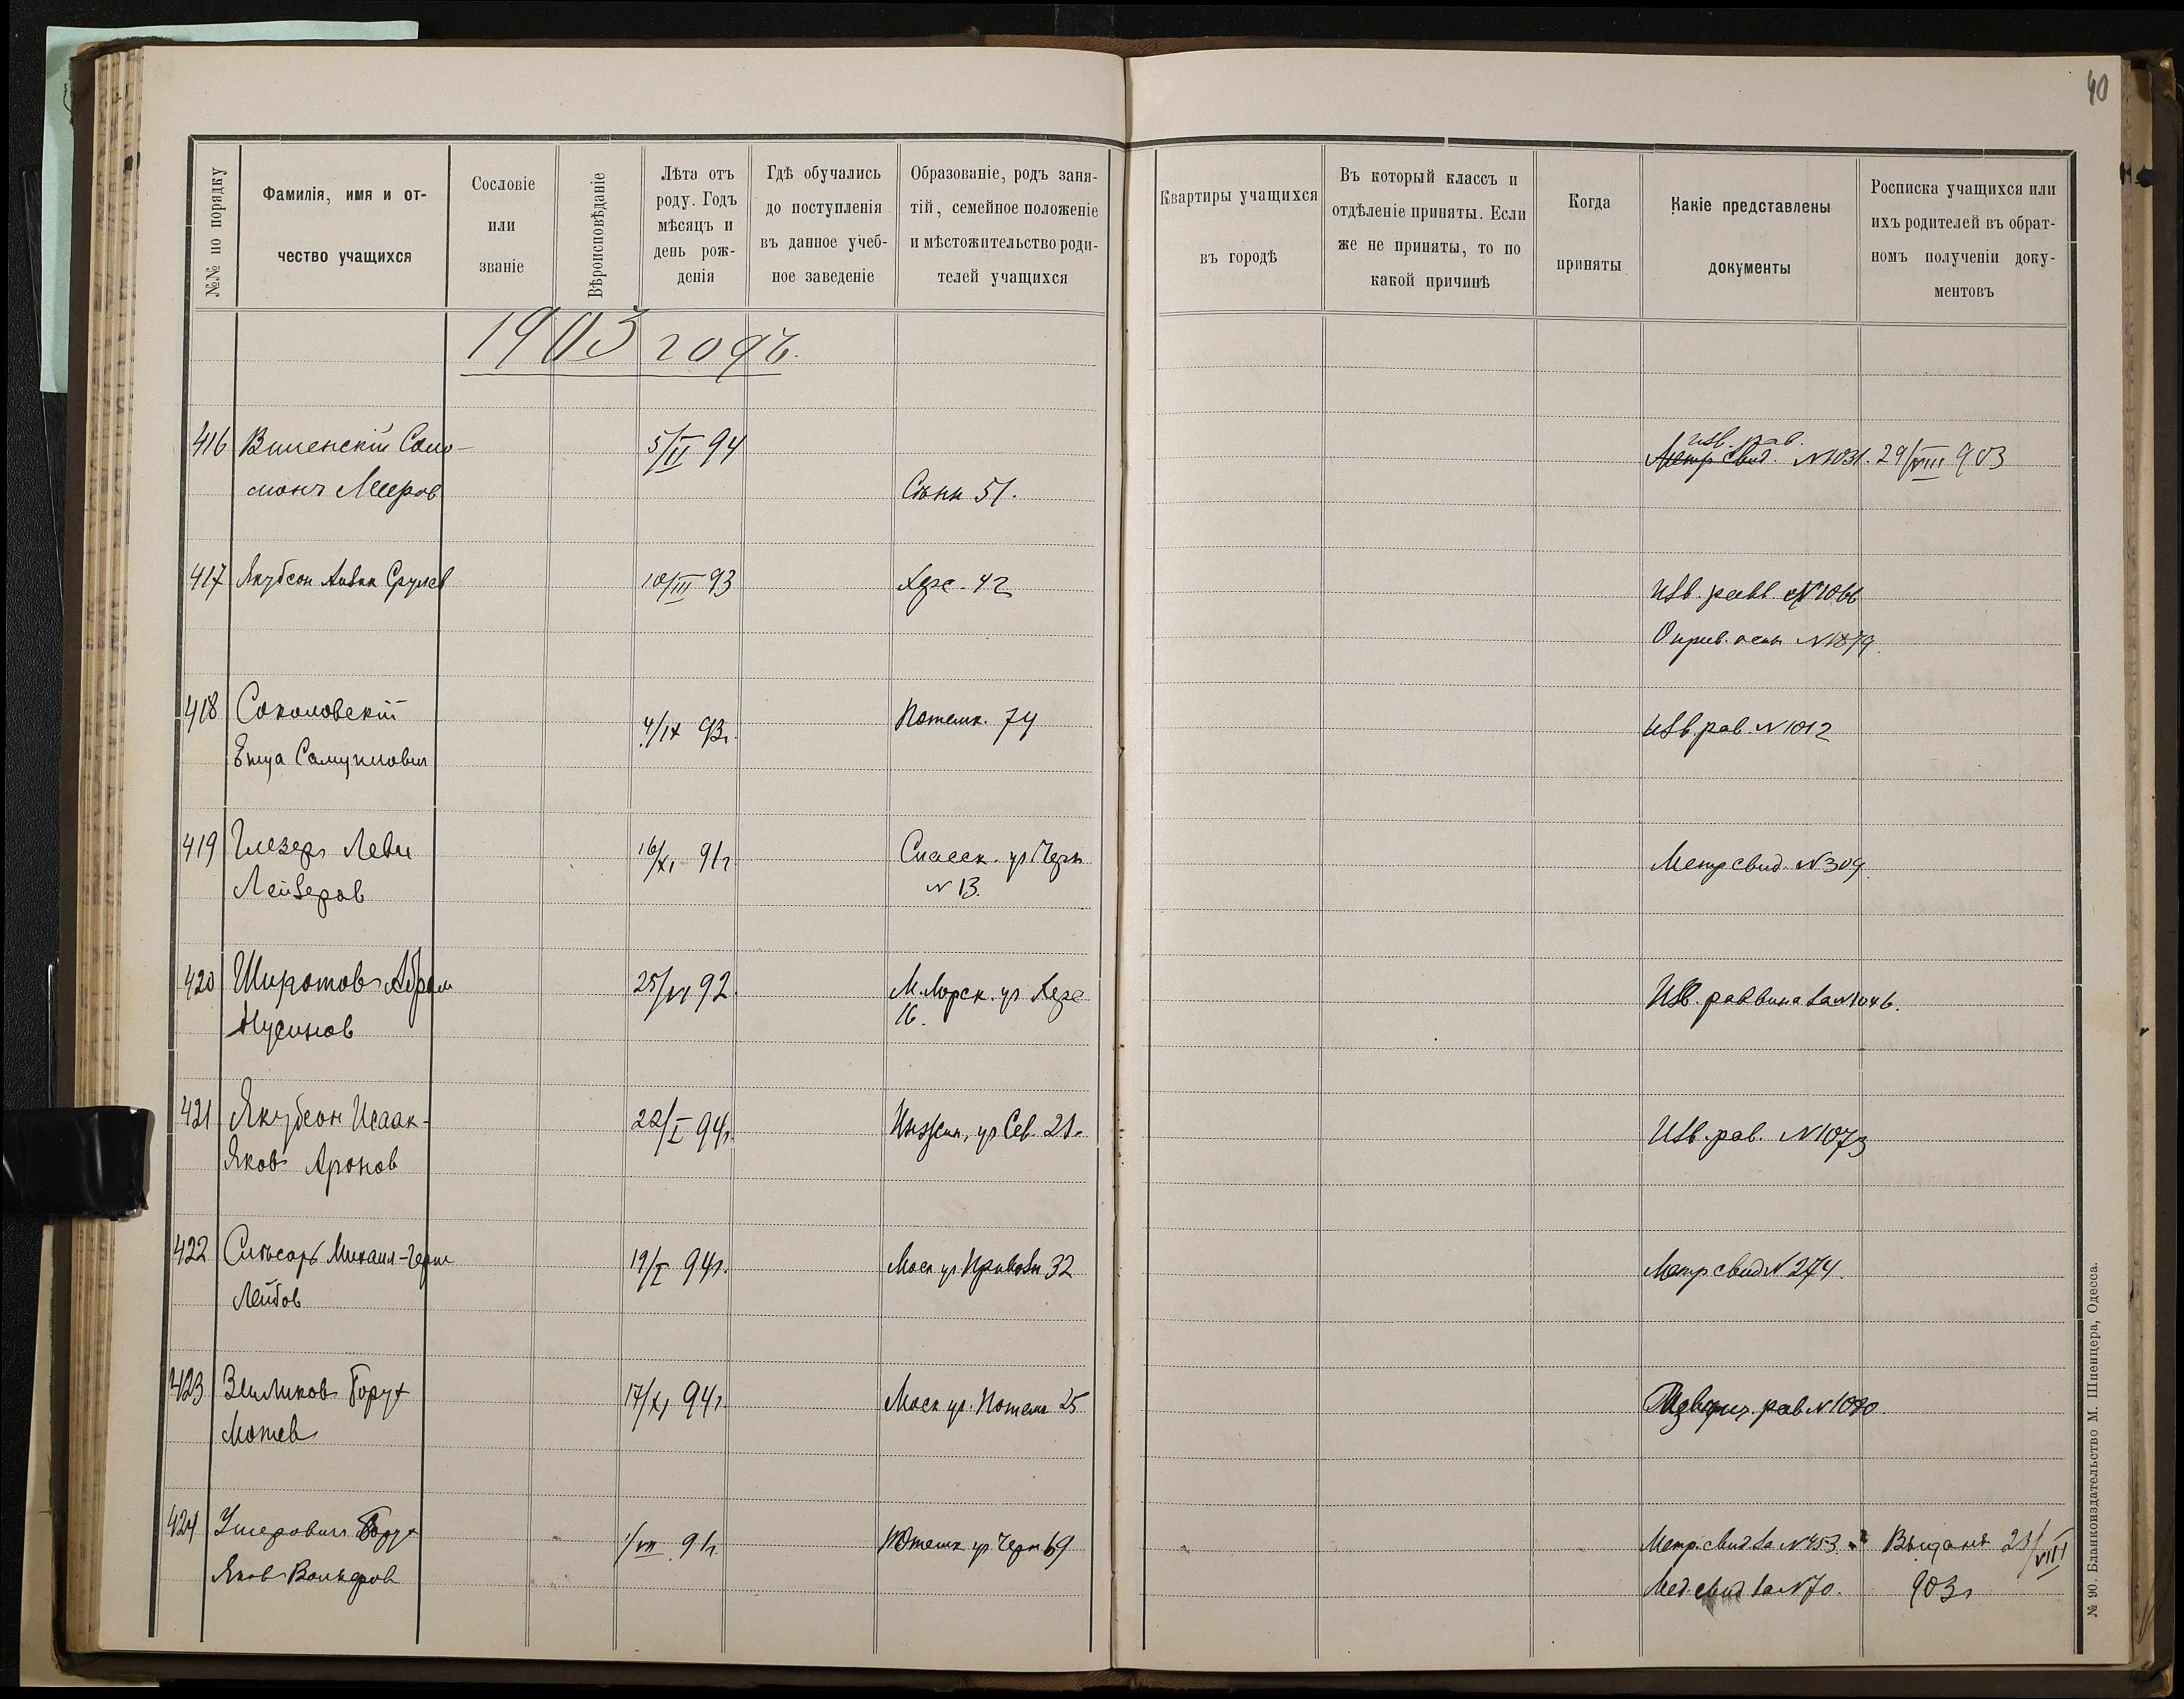 40
№№ по порядку
Фамилія, имя и от-
чество учащихся
Сословіе
или
званіе
Вѣроисповѣданіе
Лѣта отъ
роду. Годъ
мѣсяцъ и
день рож-
денія
Гдѣ обучались
до поступленія
въ данное учеб-
ное заведеніе
Образованіе, родъ заня-
тій, семейное положеніе
и мѣстожительство роди-
телей учащихся
Квартиры учащихся
въ городѣ
Въ который классъ и
отдѣленіе приняты. Если
же не приняты, то по
какой причинѣ
Когда
приняты
Какіе представлены
документы
Росписка учащихся или
ихъ родителей въ обрат-
номъ полученіи доку-
ментовъ
1903 годъ.
416 Виленскій Соло-
5/II 94
изв. рав.
Метр свид. №1031. 29/VIII 903
монъ Мееров
Сѣнн 51.
417 Якубсон Акива Срулев
10/III 93
Херс. 42
Изв. равв №1066
О прив. оспы №1879
418 Соколовскій
4/IX 93г.
Потемк. 74
Изв. рав. №1012
Самуилович
419 Глезер Леви
16/XI 91г
Спасск. уг Черн
Метр свид. №309.
Лейзеров
№ 13.
420 Широтов Абрам
25/VI 92.
М. Морск. уг Херс
Изв. раввина за №1046.
Нусинов
16.
421 Якубсон Исаак-
22/I 94г.
уг Сев. 21.
Изв. рав. №1073
Яков Аронов
422 Слѣсарь Михаил-Герш
19/I 94г.
Моск уг Привозн 32
Метр свид №274.
Лейбов
423 Зеликов Борух
17/XI 94г
Моск уг. Потемк 25
рав №1080.
Мотев
424 Ушерович Борух
1/VII 91г.
Потемк уг Черн 69
Метр. свид за №453.
Выданъ 21/VIII
Яков Волькеров
Мед. свид за №70.
903г
№ 90. Бланкоиздательство М. Шпенцера, Одесса.